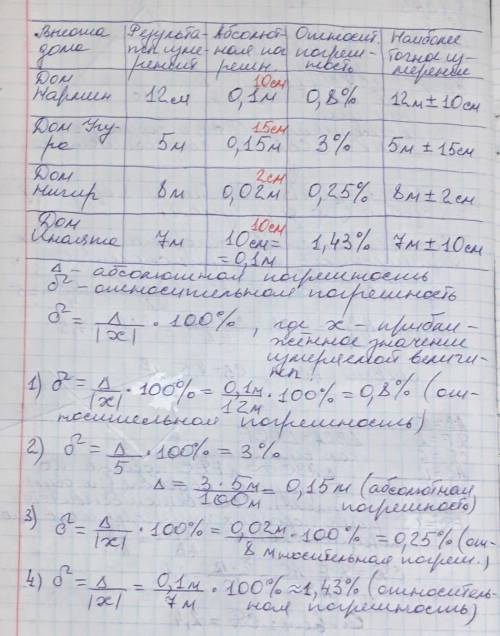 Высота дома | Результаты измерений | Абсолютная погрешн. | Относит. погрешность | Наиболее точное измерение
10см
Дом Нармин | 12м | 0,1м | 0,8% | 12м ± 10см
15см
Дом Угура | 5м | 0,15м | 3% | 5м ± 15см
2см
Дом Нигяр | 8м | 0,02м | 0,25% | 8м ± 2см
10см
Дом | 7м | 10см= =0,1м | 1,43% | 7м ± 10см
Δ - абсолютная погрешность
δ - относительная погрешность
δ = Δ/|x| · 100%, где x - прибли-
женное значение
измеряемой величи-
ны.
1) δ = Δ/|x| · 100% = 0,1м/12м · 100% = 0,8% (от-
носительная погрешность)
2) δ = Δ/5 · 100% = 3%
Δ = 3 · 5м/100м = 0,15м (абсолютная
погрешность)
3) δ = Δ/|x| · 100% = 0,02м/8м · 100% = 0,25% (от-
носительная погреш.)
4) δ = Δ/|x| = 0,1м/7м · 100% ≈ 1,43% (относитель-
ная погрешность)